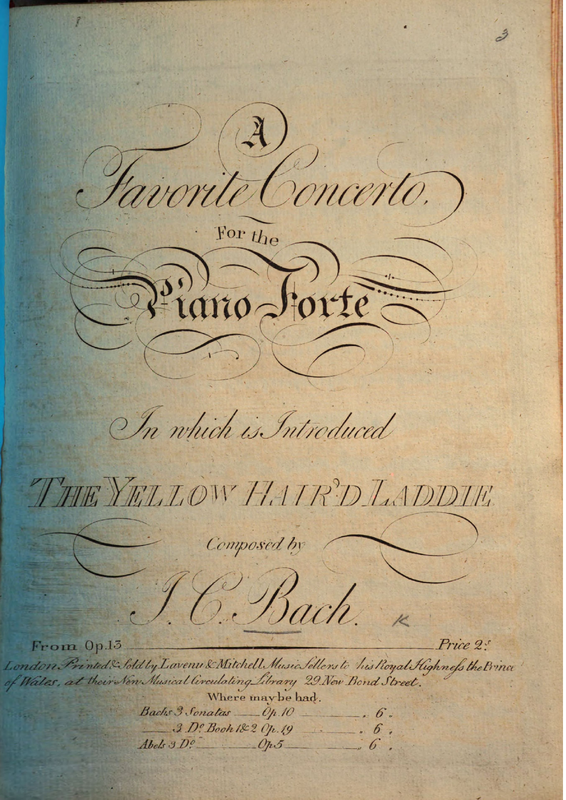 3
A
Favorite Concerto.
For the
Piano Forte
In which is Introduced
THE YELLOW HAIR'D LADDIE
Composed by
J. C. Bach.
K
From Op.13 Price 2s
London. Printed & Sold by Lavenu & Mitchell Music Sellers to his Royal Highneſs the Prince
of Wales, at their New Musical Circulating Library 29 New Bond Street.
Where may be had.
Bachs 3 Sonatas Op 10 . 6 .
3 Do Book 1 & 2 Op. 19 . 6 .
Abels 3 Do Op 5 . 6 .